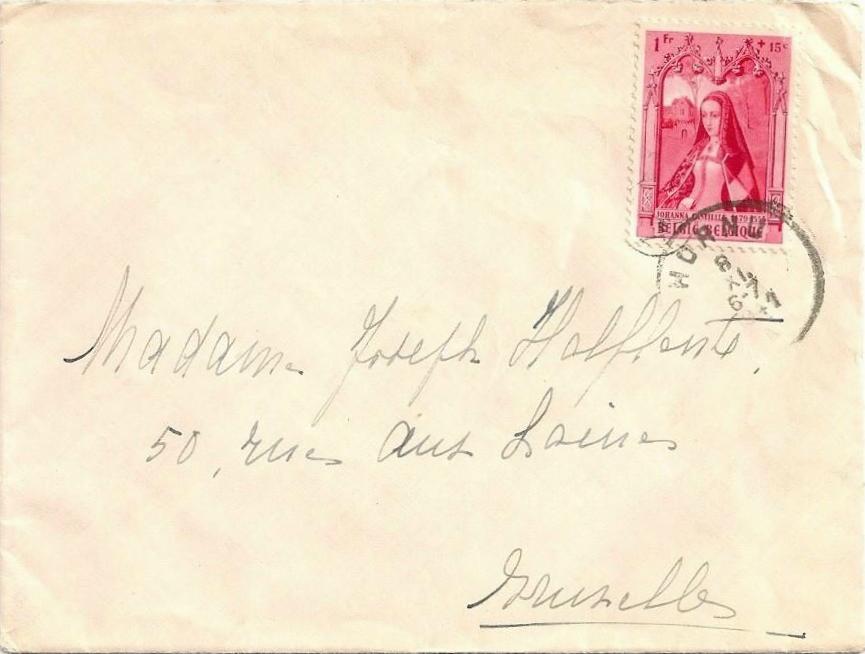 1 Fr + 15 c
JOHANNA CASTILLE 1479-1555
BELGIË-BELGIQUE
HORNU
Madame Joseph
50, rue aux Laines
Bruxelles